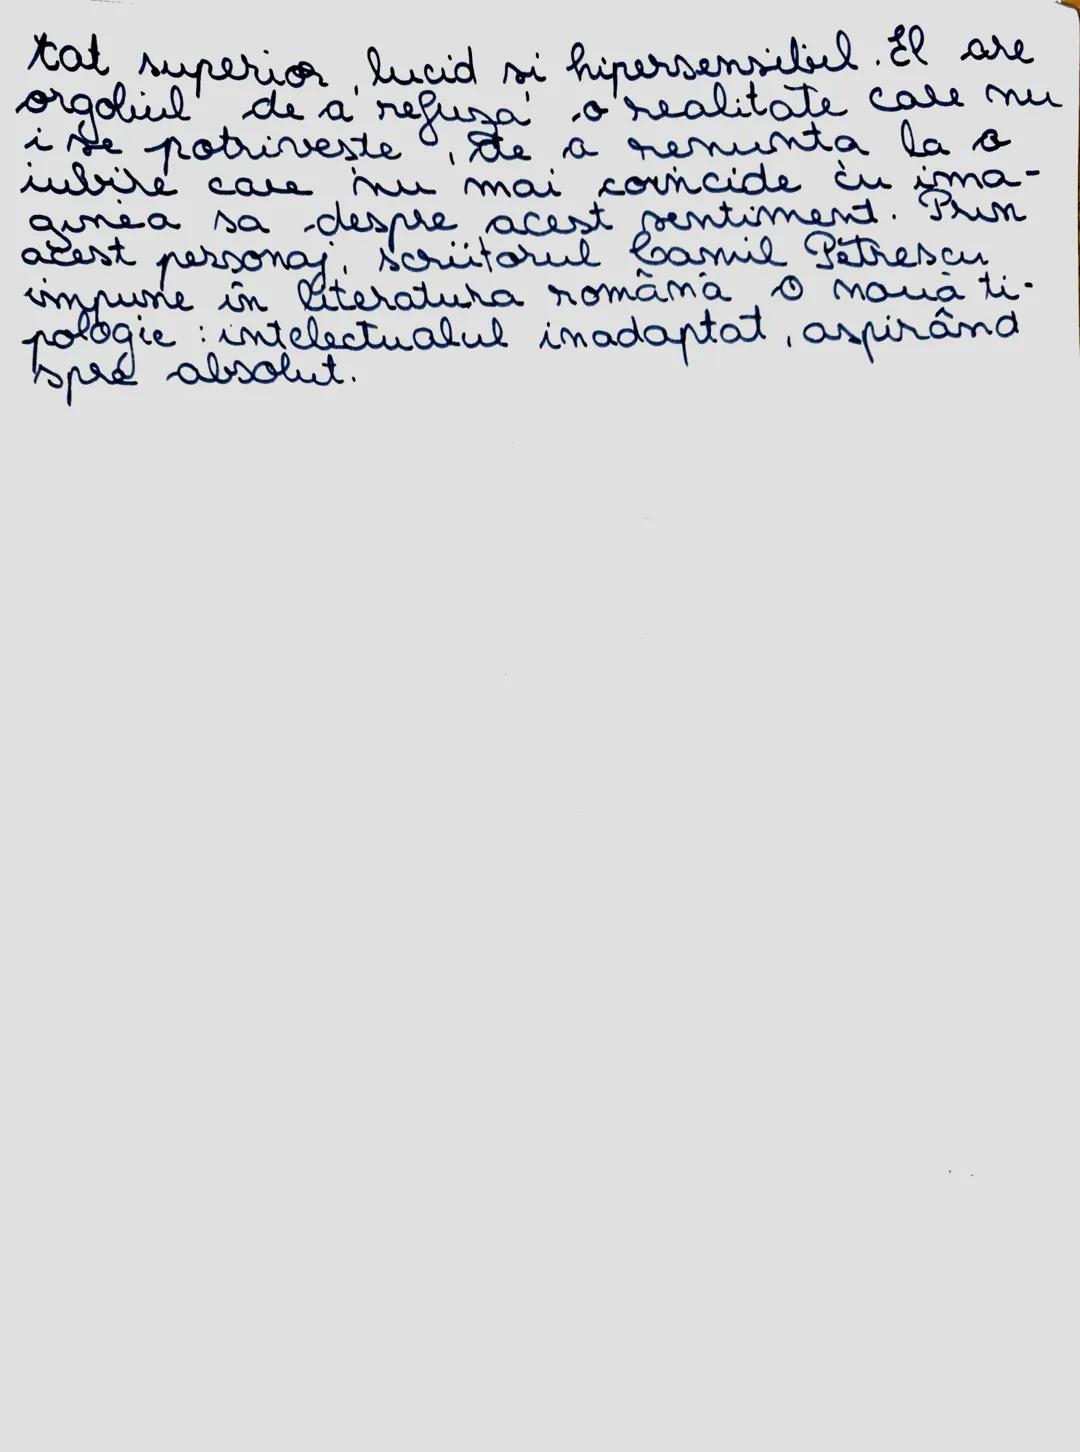 tat superior, lucid si hipersensibil. El are
orgoliul de a refuza o realitate care nu
i se potriveste, de a renunta la o
iubire care nu mai coincide cu ima-
ginea sa despre acest sentiment. Prin
acest personaj, scriitorul Camil Petrescu
impune în literatura română o nouă ti-
pologie : intelectualul inadaptat, aspirând
spre absolut.